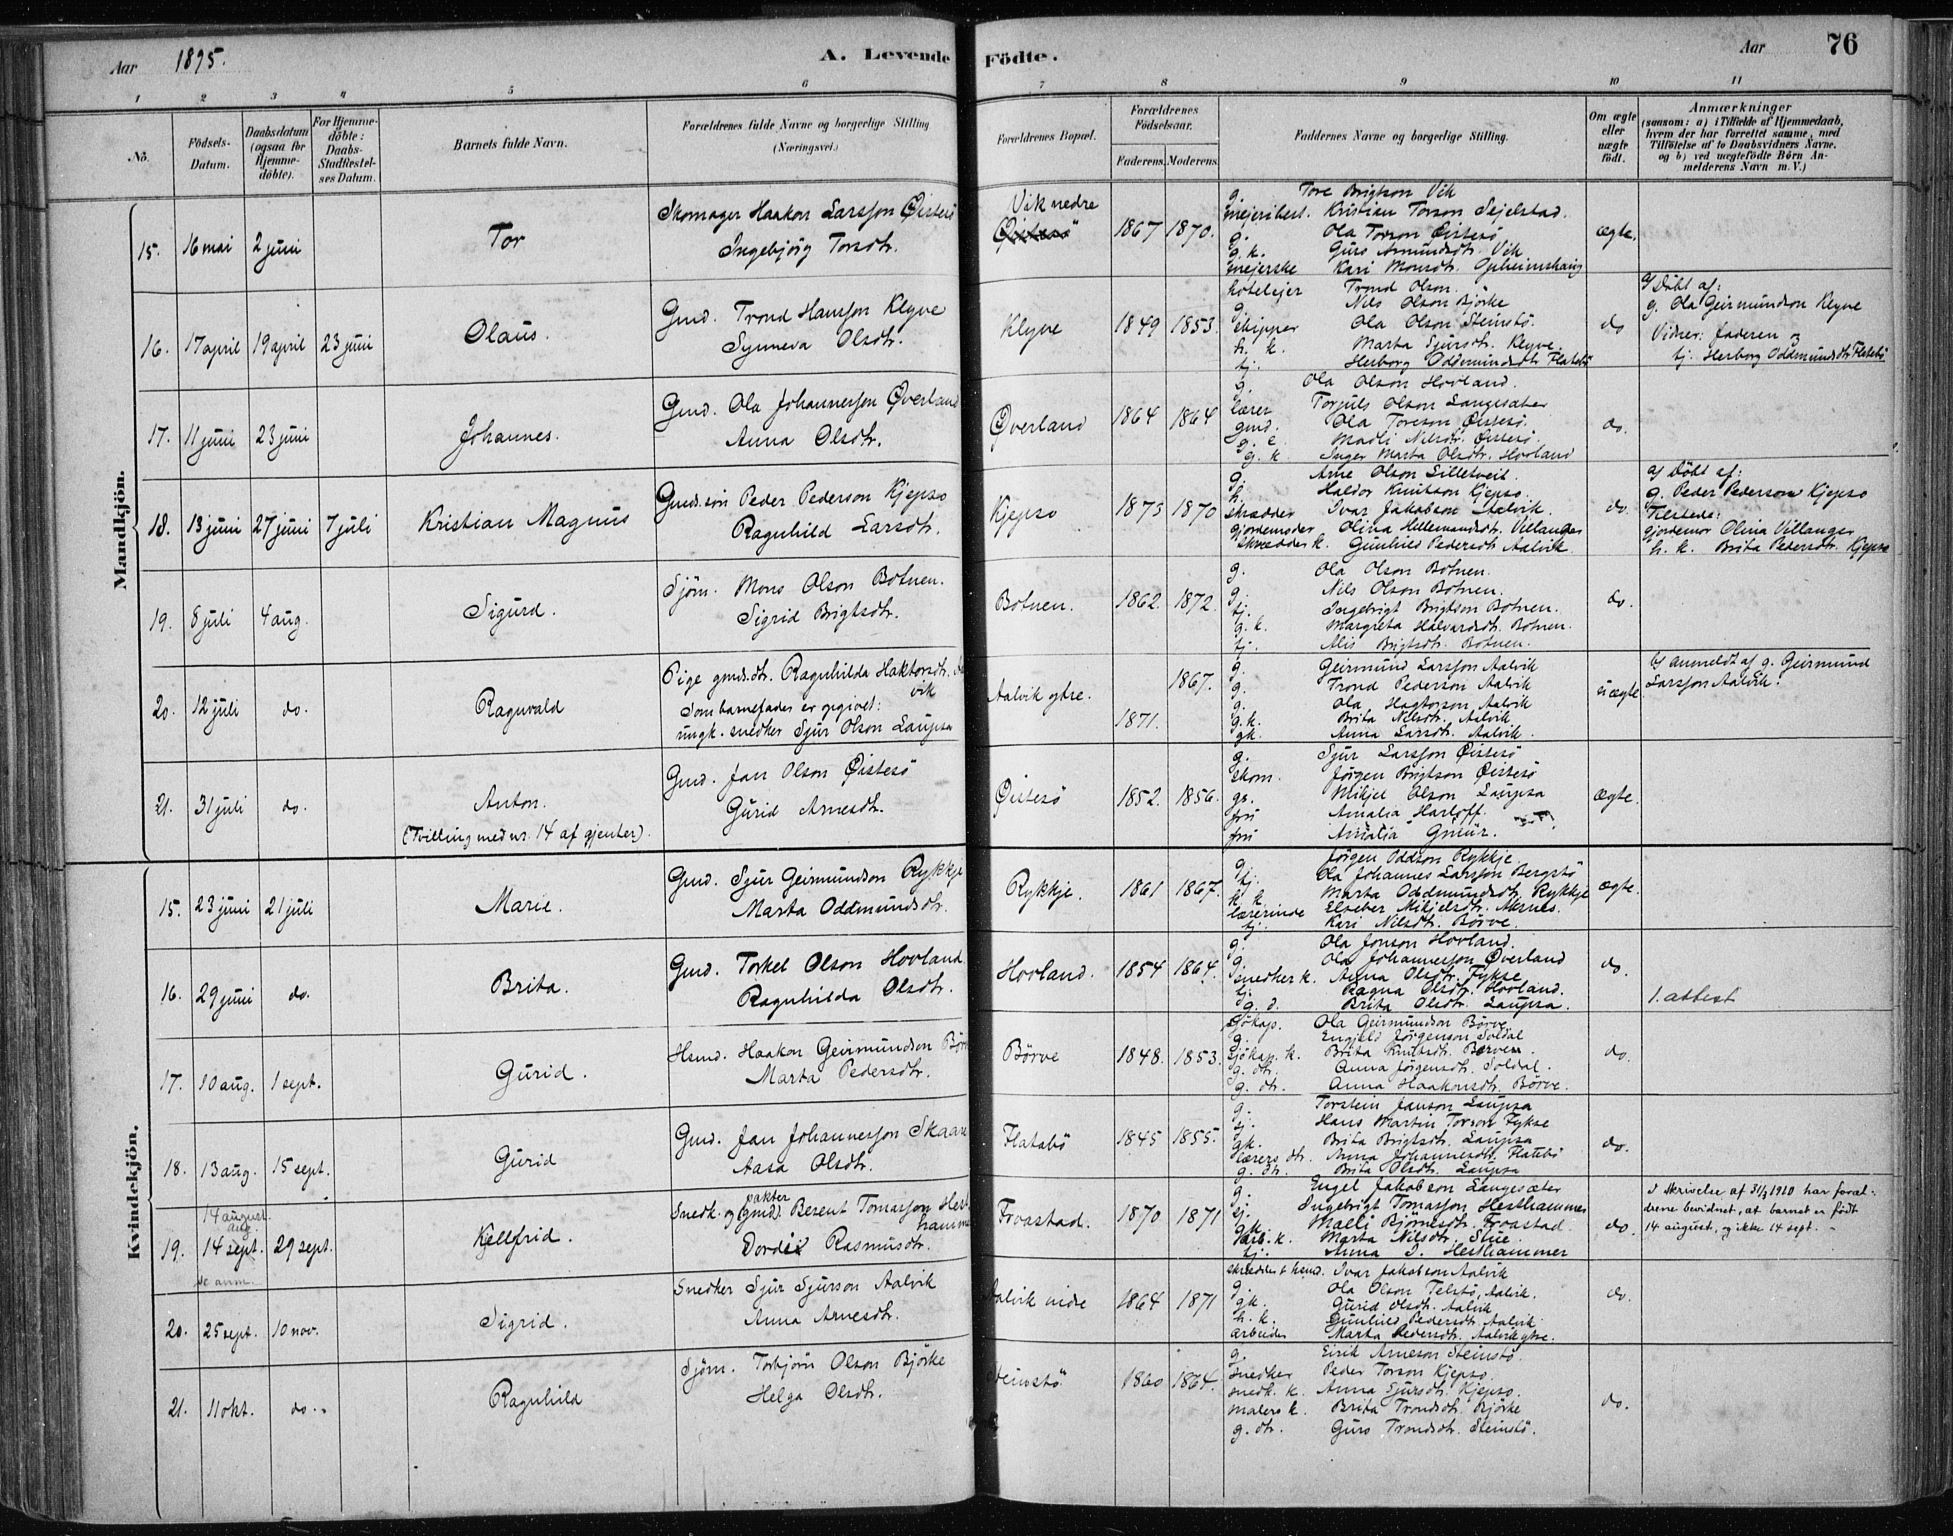 Aar 1895. A. Levende Födte. Aar 76
1 2 3 4 5 6 7 8 9 10 11
No. Födsels-Datum. Daabsdatum (ogsaa for Hjemmedöbte). For Hjemmedöbte: Daabs-Stadfæstelses Datum. Barnets fulde Navn. Forældrenes fulde Navne og borgerlige Stilling (Næringsvei.) Forældrenes Bopæl. Forældrenes Födselsaar. Faderens. Moderens. Faddernes Navne og borgerlige Stilling. Om ægte eller uægte födt. Anmærkninger (saasom: a) i Tilfælde af Hjemmedaab, hvem der har forrettet samme, med Tilföielse af to Daabsvidners Navne, og b) ved uægtefödte Börn Anmelderens Navn m. V.)
Mandkjön.
15. 16 mai 2 juni Tor
Skomager Haakon Larsson Øistesö
Ingebjörg Torsdtr.
Vik nedre
Øistesö
1867 1870.
g. Tore Brigtson Vik
mejeribest. Kristian Torson Sejelstad.
g. Ola Torson Øistesö
g.k. Guro Amundsdtr. Vik
mejerske Kari Monsdtr.
ægte.
16. 17 april 19 april 23 juni Olaus.
Gmd. Trond Hansson Klyve
Synneva Olsdtr.
Klyve 1849 1853.
hotelejer Trond Olson.
g. Nils Olson Bjørke
skipper Ola Olson Steinstö.
h. k. Marta Sjursdtr. Klyve.
tj. Herborg Oddmundsdtr. Flatebö
do
a/ Döbt af:
g. Ola Geirmundson Klyve
Vidner: faderen og
tj. Herborg Oddmundsdtr. Flatebö
17. 11 juni 23 juni Johannes.
Gmd. Ola Johannesson Øverland
Anna Olsdtr.
Øverland 1864 1864
g. Ola Olson Hovland.
lærer Torjuls Olson Langesæter
gmd. Ola Toreson Øistesö.
g. e. Madli Nilsdtr. Øistesö.
g. k. Inger Marta Olsdtr. Hovland
do.
18. 13 juni 27 juni 7 juli Kristian Magnus
Gmds.sön Peder Pederson Kjepso
Ragnhild Larsdtr.
Kjepso 1873 1870
g. Arne Olson Lilletveit.
h. Haldor Knutson Kjepso.
skrædder Ivar Jakobson Aalvik.
gjordemoder Olina Villanger
skrædder k. Gunhild Pedersdtr. Aalvik
do.
a/ Döbt af:
g. Peder Pederson Kjepso
Tilstede:
gjordemor Olina Villanger
h. k. Brita Pedersdtr. Kjepso
19. 8 juli 4 aug. Sigurd.
Sjöm. Mons Olson Botnen.
Sigrid Brigtsdtr.
Botnen. 1862. 1872.
g. Ola Olson Botnen.
g. Nils Olson Botnen.
tj. Ingebrigt Brigtson Botnen.
g. k. Margreta Halvardsdtr. Botnen.
tj. Alis Brigtsdtr. Botnen.
do.
20. 12 juli do. Ragnvald
Pige gmds.dtr. Ragnhilda Haktorsdtr. Aalvik
Som barnefader er opgivet:
ungk. snedker Sjur Olson Laupsa
Aalvik ytre. 1867.
1871.
g. Geirmund Larsson Aalvik
g. Trond Pederson Aalvik
g. Ola Hagtorson Aalvik
g.k. Brita Nilsdtr. Aalvik
gk. Anna Larsdtr. Aalvik.
uægte
b/ anmeldt af g. Geirmund
Larsson Aalvik.
21. 31 juli do. Anton.
(Tvilling med nr. 14 af gjenter).
Gmd. Jan Olson Øistesö
Gurid Arnesdtr.
Øistesö 1852. 1856.
g. Sjur Larsson Øistesö
skom. Jörgen Brigtson Øistesö
gs. Mikjel Olson Laupsa
fru Amalia Harloff.
fru Amalia Gmür.
ægte.
Kvindekjön.
15. 23 juni 21 juli Marie.
Gmd. Sjur Geirmundson Rykkje
Marta Oddmundsdtr.
Rykkje. 1861 1867.
g. Jörgen Oddson Rykkje
tj. Ola Johannes Larsson Bergstö
h. k. Marta Oddmundsdtr. Rykkje
lærerinde Elseber Mikjelsdtr. Aksnes.
tj. Kari Nilsdtr. Börve.
ægte.
16. 29 juni do. Brita.
Gmd. Torkel Olson Hovland
Ragnhilda Olsdtr.
Hovland. 1854 1864.
g. Ola Jonson Hovland.
g. Ola Johannesson Øverland
snedker k. Anna Olsdtr. Fykse
tj. Ragna Olsdtr. Hovland.
g. d. Brita Olsdtr. Laupsa.
do.
1. attest
17. 10 aug. 1 sept. Gurid.
Hsmd. Haakon Geirmundson Börve
Marta Pedersdtr.
Börve 1848. 1853.
Sjökap. Ola Geirmundson Börve
g. Engjeld Jörgenson Soldal
Sjökap. k. Brita Knutsdtr. Berven.
g. dtr. Anna Jörgensdtr. Soldal.
g. dtr. Anna Haakonsdtr. Börve.
do.
18. 13 aug. 15 sept. Gurid
Gmd. Jan Johannesson Skaare
Aasa Olsdtr.
Flatebö 1845 1855.
g. Torstein Janson Laupsa
tj. Hans Martin Torson Fykse
gk. Brita Brigtsdtr. Laupsa
lærers dtr. Anna Johannesdtr. Flatebö
g. dtr. Brita Olsdtr. Laupsa
do.
14 august
aug.
19. 14 sept. 29 sept. Kjellfrid
se anm.
pakter
Snedk. og (gmd). Berent Tomasson Hesthammer
Dordei Rasmusdtr.
Froastad. 1870 1871
g. Engel Jakobson Langesæter
sj. Ingebrigt Tomasson Hesthammer
gk. Malli Björnesdtr. Froastad.
k. Marta Nilsdtr.
tj. Anna I. Hesthammer
do.
I skrivelse af 31/3 1910 har foræl-
drene bevidnet, at barnet er födt
14 august, og ikke 14 sept.
20. 25 sept. 10 nov. Sigrid.
Snedker Sjur Sjurson Aalvik
Anna Arnesdtr.
Aalvik indre 1864 1871
skrædder & hsmd. Ivar Jakobson Aalvik
g. Ola Olson Telstö, Aalvik.
gk. Gurid Olsdtr. Aalvik
h. k. Gunhild Pedersdtr. Aalvik
arbeider Marta Pedersdtr. Aalvik ytre.
do.
21. 11 okt. do. Ragnhild
Sjöm. Torbjörn Olson Bjørke
Helga Olsdtr.
Steinstö 1860 1864.
g. Eirik Arneson Steinstö.
Snedker Peder Torson Kjepso.
snedk. k. Anna Sjursdtr. Kjepso.
malers k. Brita Trondsdtr. Bjørke
g. dtr. Guro Trondsdtr. Steinstö.
do.